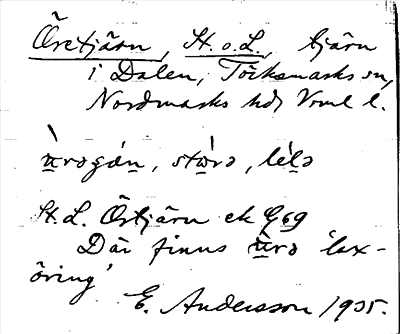 Öretjärn, St. o. L., tjärn
i Dalen, Töcksmarks sn,
Nordmarks hd, Vrml l.
ǜrəgɑ́n, stǿrə, lélə
St. L. Örtjärn ek G69
Där finns ǜrə 'lax-
öring'
E. Andersson 1935.